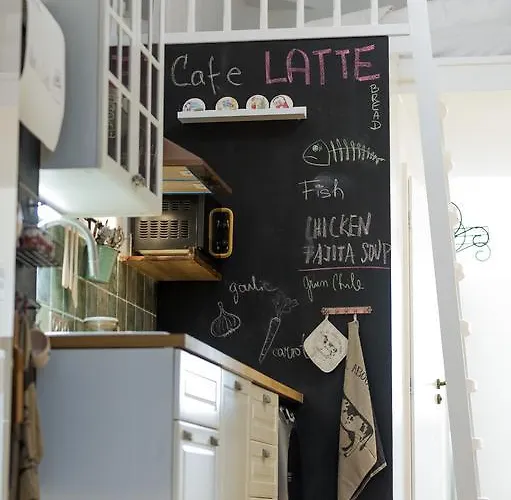 Cafe LATTE
BREAD
Fish
CHICKEN
FAJITA SOUP
garlic
grün Chile
carrot